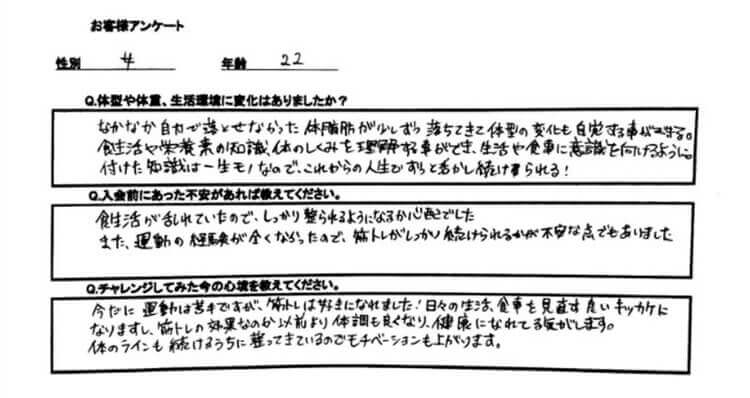 お客様アンケート
性別 女 年齢 22
Q.体型や体重、生活環境に変化はありましたか？
なかなか自力で落とせなかった体脂肪が少しずつ落ちてきて体型の変化も自覚する事ができる。
食生活や栄養素の知識、体のしくみを理解する事ができ、生活や食事に意識を向けるように。
付けた知識は一生モノなので、これからの人生でずっと活かし続けられる！
Q.入会前にあった不安があれば教えてください。
食生活が乱れていたので、しっかり整られるようになるか心配でした
また、運動の経験が全くなかったので、筋トレがしっかり続けられるかが不安な点でもありました
Q.チャレンジしてみた今の心境を教えてください。
今だに運動は苦手ですが、筋トレは好きになれました！日々の生活、食事を見直す良いキッカケに
なりますし、筋トレの効果なのか以前より体調も良くなり、健康になれてる気がします。
体のラインも続けるうちに整ってきているのでモチベーションも上がります。